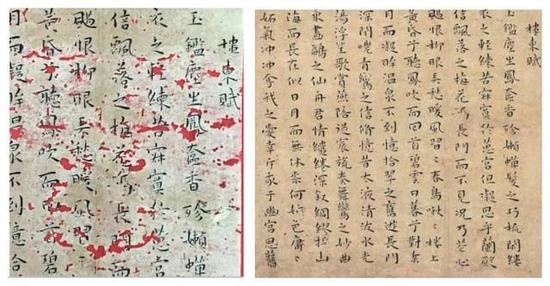 樓東賦
玉鑑塵生鳳奩香殄嬾蟬
衣之輕練苦寂寞於蕙宮
信飄落之梅花隔長門而
颺恨柳眼弄愁暖風習〻
黃昏兮聽鳳吹而回首碧
月而凝眸溫泉不到憶拾
樓東賦
玉鑑塵生鳳奩香殄嬾蟬鬢之巧梳閑縷
衣之輕練苦寂寞於蕙宮但凝思乎蘭殿
信飄落之梅花隔長門而不見況乃花心
颺恨柳眼弄愁暖風習〻春鳥啾〻樓上
黃昏兮聽鳳吹而回首碧雲日暮兮對素
月而凝眸溫泉不到憶拾翠之舊遊長門
深閉嗟青鸞之信脩憶昔太液清波水光
蕩浮笙歌賞燕陪從宸旒奏舞鸞之妙曲
乘畫鷁之仙舟君情繾綣深叙綢繆誓山
海而長在似日月而無休奈何嫉色庸〻
妬氣沖沖奪我之愛幸斥我乎幽宮思舊